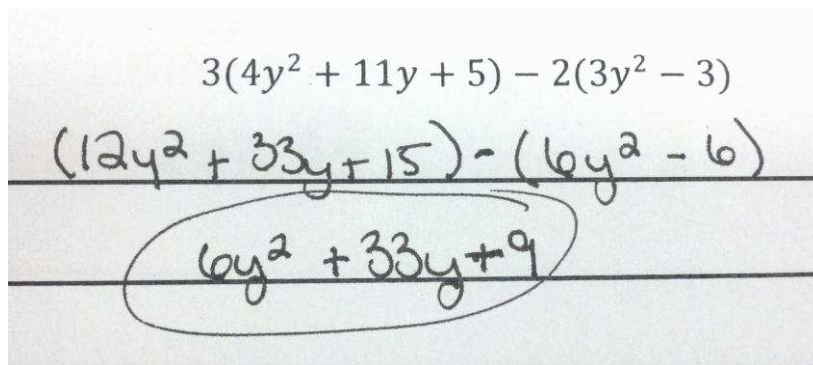 3(4y² + 11y + 5) − 2(3y² − 3)
(12y² + 33y + 15) - (6y² - 6)
6y² + 33y + 9